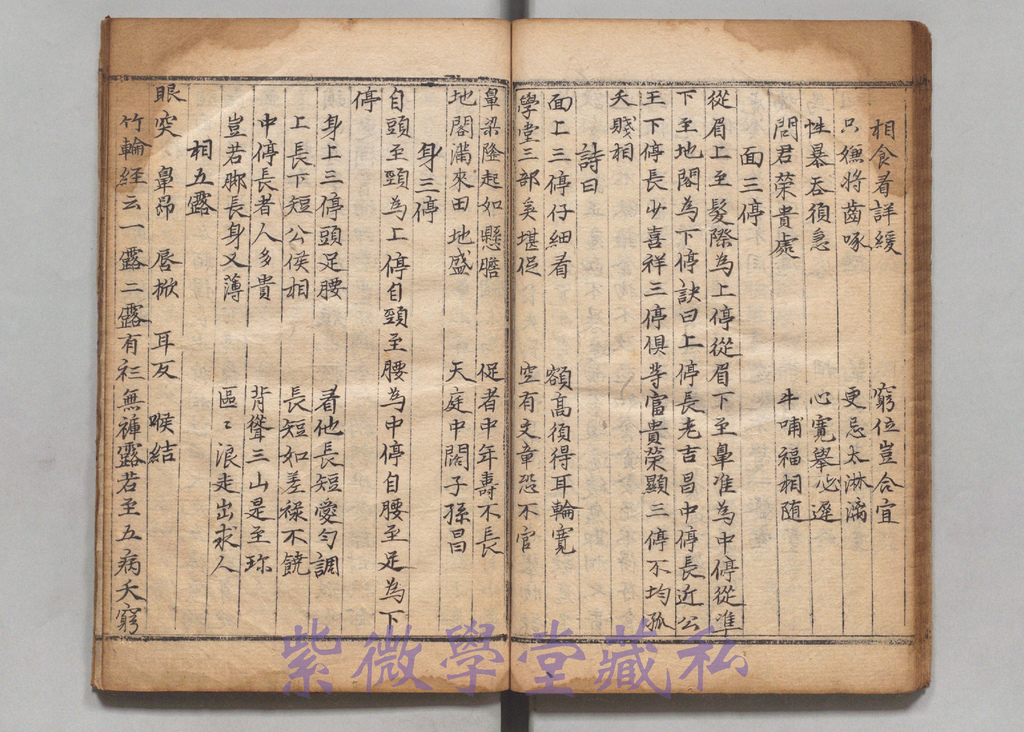 相食看詳緩 窮位豈合宜
只嫌將齒啄 更忌太淋漓
性暴吞須急 心寬舉必遲
問君榮貴處 牛哺福相随
面三停
從眉上至髮際為上停從眉下至鼻准為中停從準
下至地閣為下停訣曰上停長老吉昌中停長近公
王下停長少喜祥三停俱等富貴榮顯三停不均孤
夭賤相
詩曰
面上三停仔細看 額高須得耳輪寬
學堂三部奚堪促 空有文章恐不官
鼻梁隆起如懸膽 促者中年壽不長
地閣滿來田地盛 天庭中闊子孫昌
身三停
自頭至頸為上停自頸至腰為中停自腰至足為下
停
身上三停頭足腰 看他長短愛勻調
上長下短公侯相 長短如差祿不饒
中停長者人多貴 背聳三山是至珎
豈若脚長身又薄 區〻浪走出求人
相五露
眼突 鼻昂 唇掀 耳反 喉結
竹輪経云一露二露有衫無褲露若至五病夭窮
紫微學堂藏私